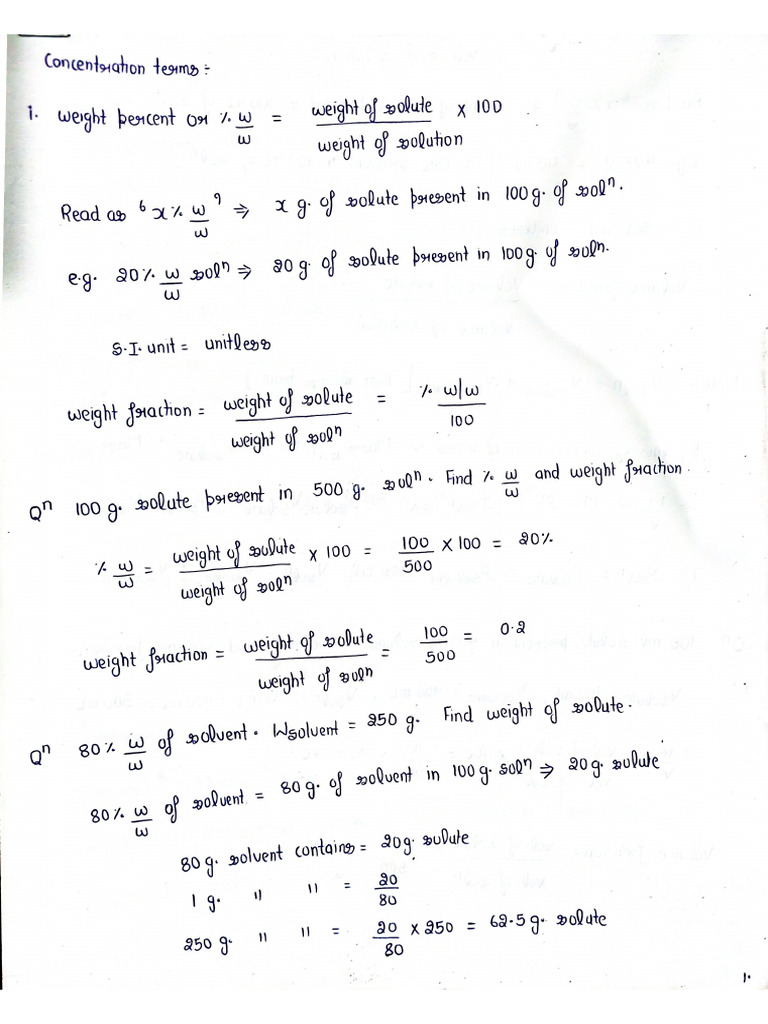 Concentration terms :-
1. weight percent or % w/w = weight of solute / weight of solution x 100
Read as 6 x % w/w 9 ⇒ x g. of solute present in 100 g. of solⁿ.
e.g. 20 % w/w solⁿ ⇒ 20 g. of solute present in 100 g. of solⁿ.
S.I. unit = unitless
weight fraction = weight of solute / weight of solⁿ = % w/w / 100
Qⁿ 100 g. solute present in 500 g. solⁿ. Find % w/w and weight fraction.
% w/w = weight of solute / weight of solⁿ x 100 = 100/500 x 100 = 20%
weight fraction = weight of solute / weight of solⁿ = 100/500 = 0.2
Qⁿ 80% w/w of solvent. Wsolvent = 250 g. Find weight of solute.
80% w/w of solvent = 80 g. of solvent in 100 g. solⁿ ⇒ 20 g. solute
80 g. solvent contains = 20 g. solute
1 g. " " = 20/80
250 g. " " = 20/80 x 250 = 62.5 g. solute
1.